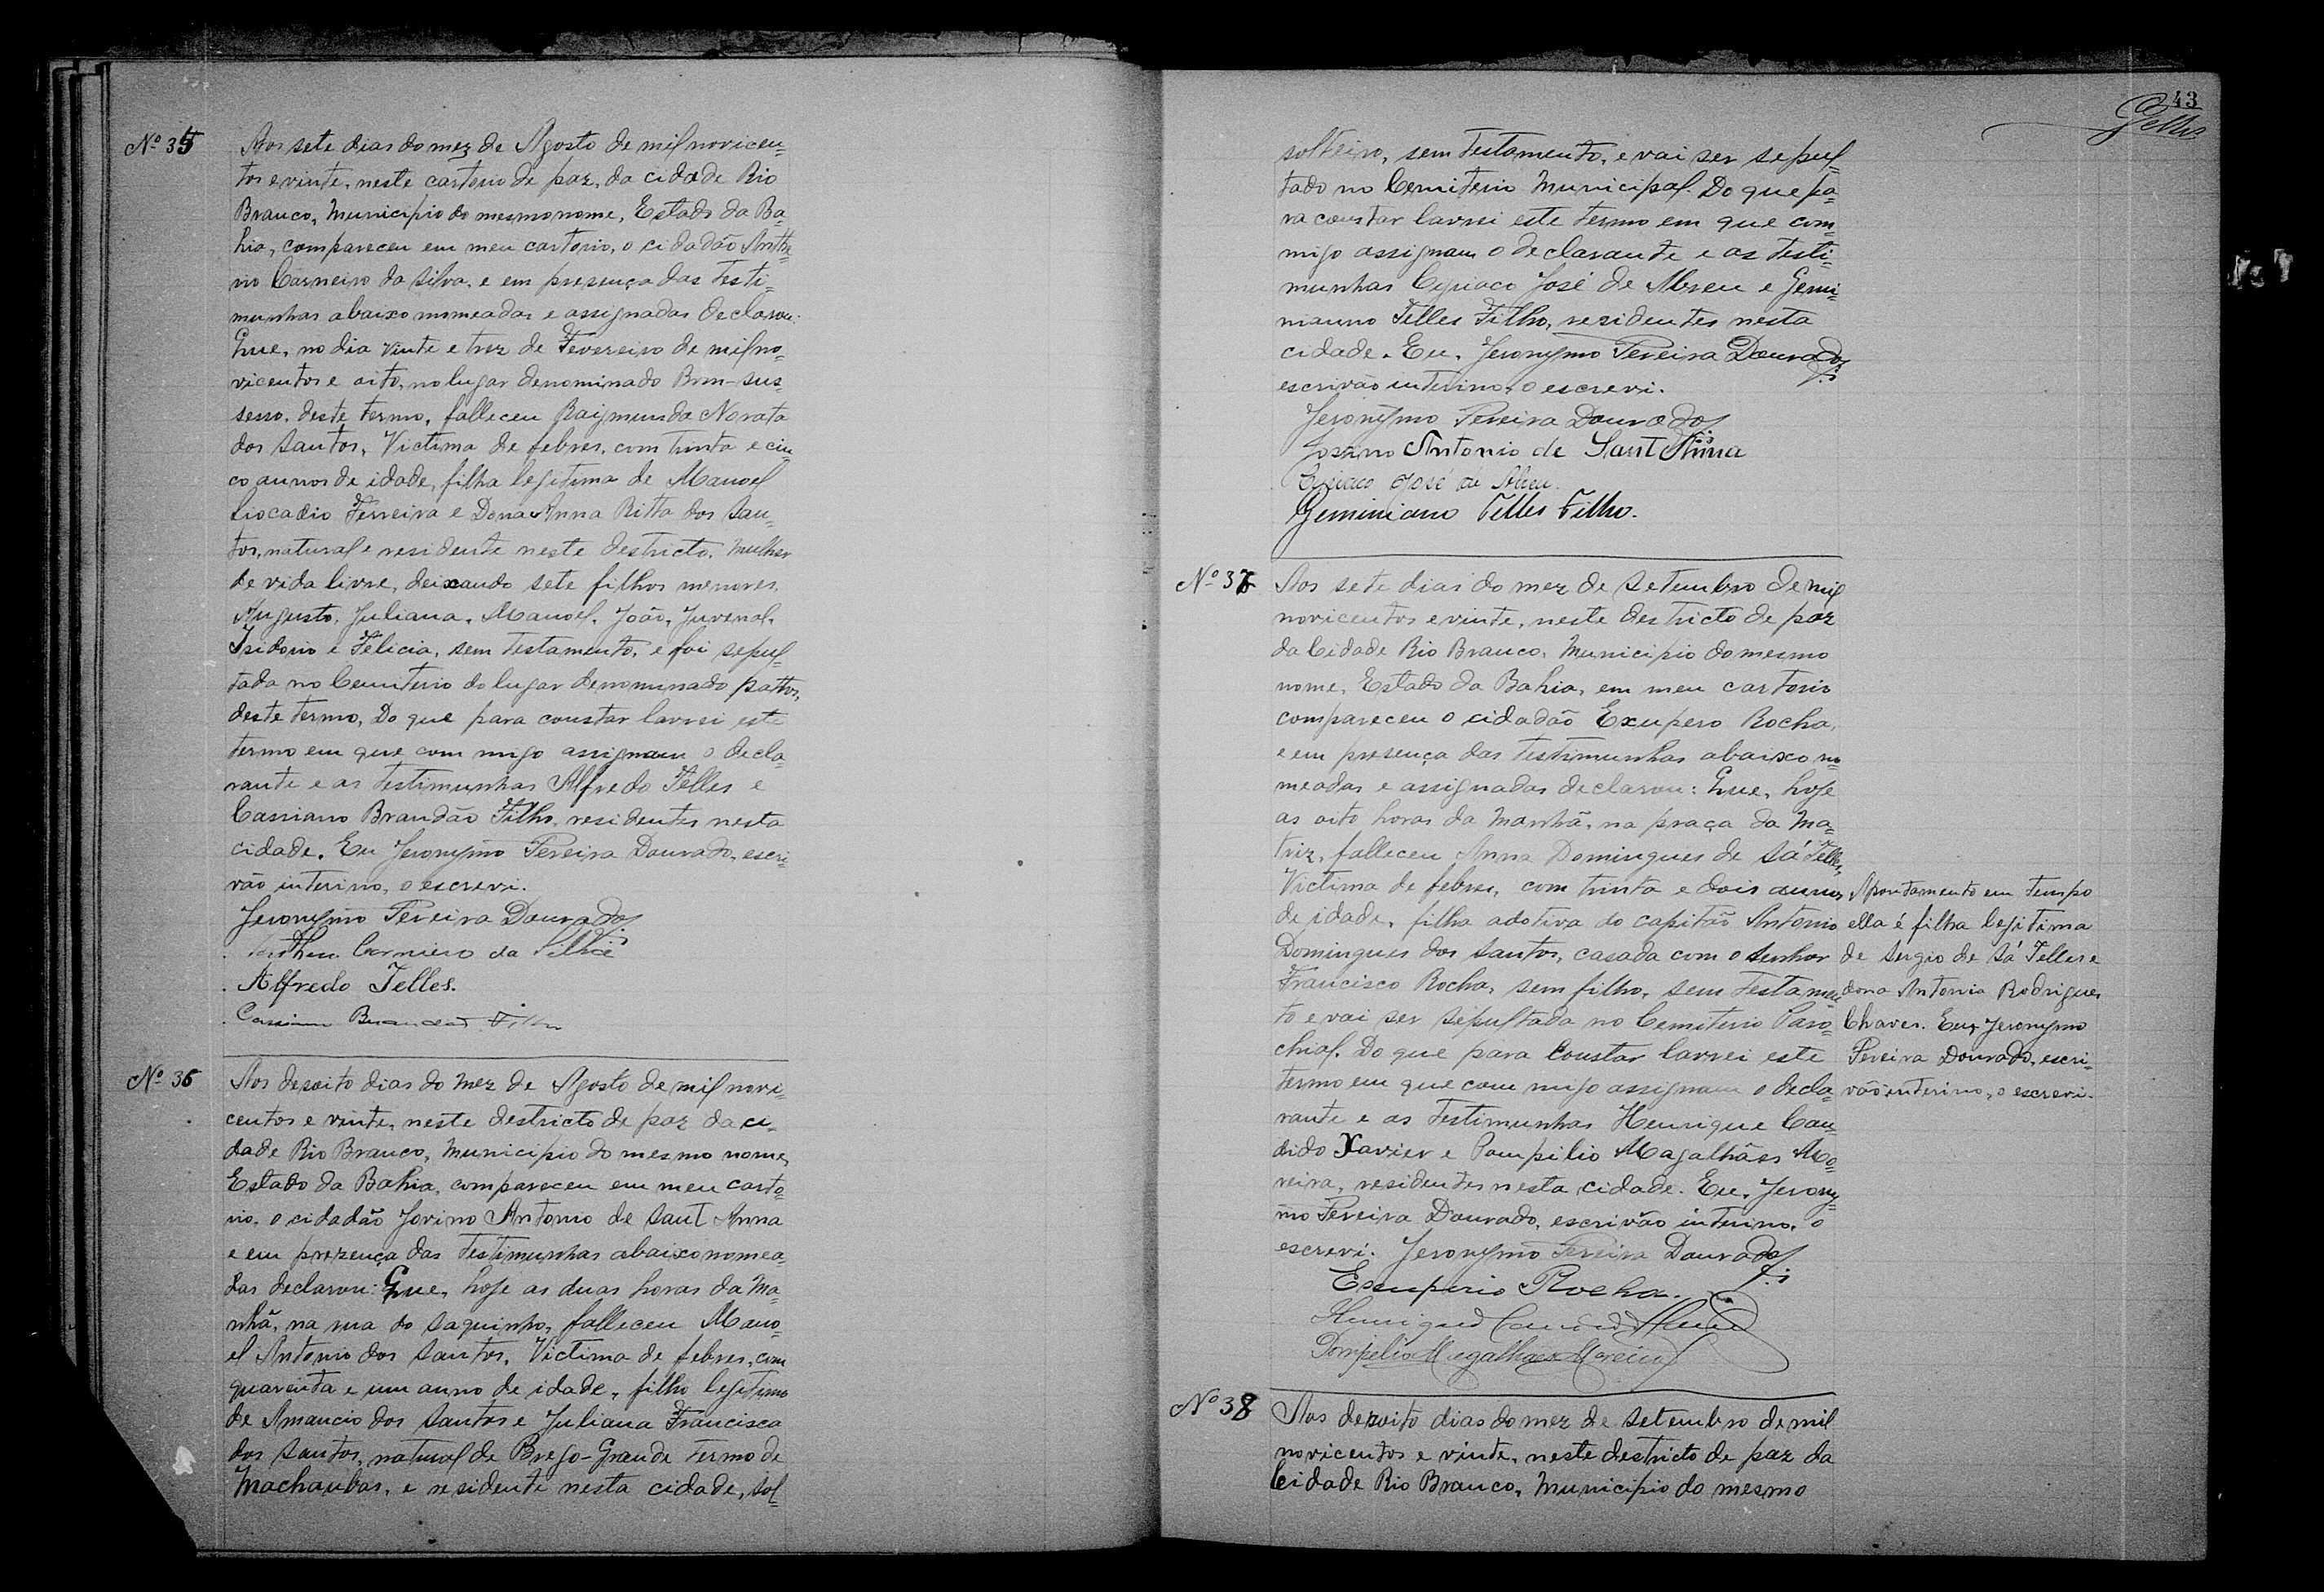 Nº 35
Aos sete dias do mez de Agosto de mil novicen-
tos e vinte, neste cartorio de paz, da cidade Rio
Branco, Municipio do mesmo nome, Estado da Ba-
hia, compareceu em meu cartorio, o cidadão Anthe-
rio Carneiro da Silva, e em presença das testi-
munhas abaixo nomeadas e assignadas declarou:
Que, no dia vinte e trez de Fevereiro de mil no-
vicentos e oito, no lugar denominado Bom-sus-
sesso, deste termo, falleceu Raigmunda Norata
dos Santos, Victima de febres, com trinta e cin-
co annos de idade, filha legitima de Manoel
Liocadio Ferreira e Dona Anna Ritta dos San-
tos, natural e residente neste destricto, mulher
de vida livre, deixando sete filhos menores,
Augusto, Juliana, Manoel, João, Juvenal,
Isidorio e Felicia, sem testamento, e foi sepul-
tada no Cemiterio do lugar denominado pattos,
deste termo, Do que para constar lavrei este
termo em que com migo assignam o decla-
rante e as testimunhas Alfredo Telles e
Cassiano Brandão Filho, residentes nesta
cidade. Eu Jeronymo Pereira Dourado, escri-
vão interino, o escrevi.
Jeronymo Pereira Dourado
Carneiro da Silva
Alfredo Telles.
Cassiano Brandão Filho
Nº 36
Aos desoito dias do mez de Agosto de mil novi-
centos e vinte, neste destricto de paz da ci-
dade Rio Branco, Municipio do mesmo nome,
Estado da Bahia, compareceu em meu carto-
rio, o cidadão Jovino Antonio de Sant Anna
e em prezença das testimunhas abaixo nomea-
das declarou: Que, hoje as duas horas da ma-
nhã, na rua do Saquinho, falleceu Mano-
el Antonio dos Santos, Victima de febres, com
quarenta e um anno de idade, filho legitimo
de Amancio dos Santos e Juliana Francisca
dos Santos, natural de Brejo-Grande termo de
Machaubas, e residente nesta cidade, sol-
43
Telles
solteiro, sem testamento, e vai ser sepul-
tado no Cemiterio Municipal. Do que pa-
ra constar lavrei este termo em que com-
migo assignam o declarante e as testi-
munhas Cyriaco José de Abreu e Gemi-
nianno Telles Filho, residentes nesta
cidade. Eu, Jeronymo Pereira Dourado,
escrivão interino, o escrevi.
Jeronymo Pereira Dourado
Jovino Antonio de Sant'Anna
Ciriaco José de Abreu.
Geminiano Telles Filho.
Nº 37
Aos sete dias do mez de Setembro de mil
novicentos e vinte, neste destricto de paz
da Cidade Rio Branco, Municipio do mesmo
nome, Estado da Bahia, em meu cartorio
compareceu o cidadão Exupero Rocha,
e em presença das testimunhas abaixo no-
meadas e assignadas declarou: Que, hoje
as oito horas da manhã, na praça da Ma-
triz, falleceu Anna Domingues de Sá Telles,
Victima de febres, com trinta e dois annos
de idade, filha adotiva do capitão Antonio
Domingues dos Santos, casada com o senhor
Francisco Rocha, sem filho, sem testamen-
to e vai ser sepultada no Cemiterio Paro-
chial. Do que para constar lavrei este
termo em que com migo assignam o decla-
rante e as testimunhas Henrique Can-
dido Xavier e Pompilio Magalhães Mo-
reira, residentes nesta cidade. Eu, Jerony-
mo Pereira Dourado, escrivão interino, o
escrevi. Jeronymo Pereira Dourado
Exuperio Rocha.
Henrique Candido
Pompilio Magalhães Moreira
Apontamento em tempo
ella é filha legitima
de Sergio de Sá Telles e
dona Antonia Rodrigues
Chaves. Eu, Jeronymo
Pereira Dourado, escri-
vão interino, o escrevi.
Nº 38
Aos dezoito dias do mez de Setembro de mil
novicentos e vinte, neste destricto de paz da
Cidade Rio Branco, Municipio do mesmo